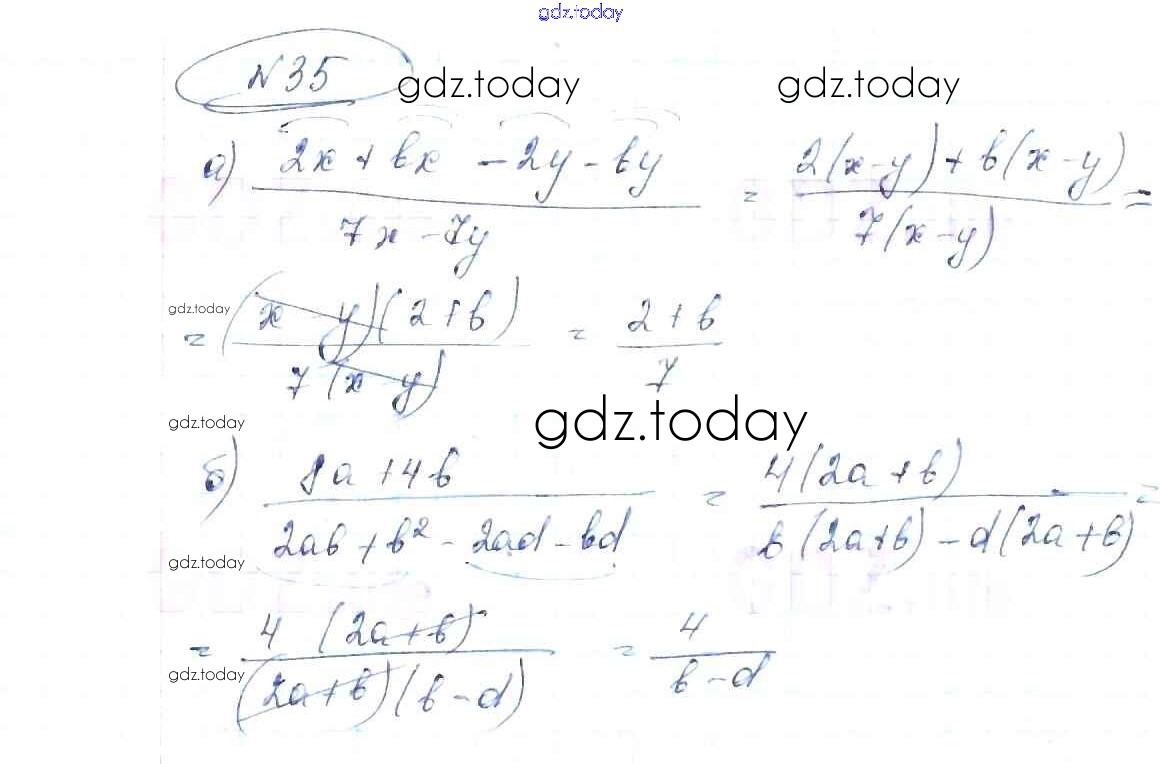 gdz.today
№35
gdz.today gdz.today
а) (2x + bx - 2y - by)/(7x - 7y) = (2(x-y) + b(x-y))/(7(x-y)) =
gdz.today
= ((x-y)(2+b))/(7(x-y)) = (2+b)/7
gdz.today
gdz.today
б) (8a + 4b)/(2ab + b² - 2ad - bd) = (4(2a+b))/(b(2a+b) - d(2a+b)) =
gdz.today
= (4(2a+b))/((2a+b)(b-d)) = 4/(b-d)
gdz.today